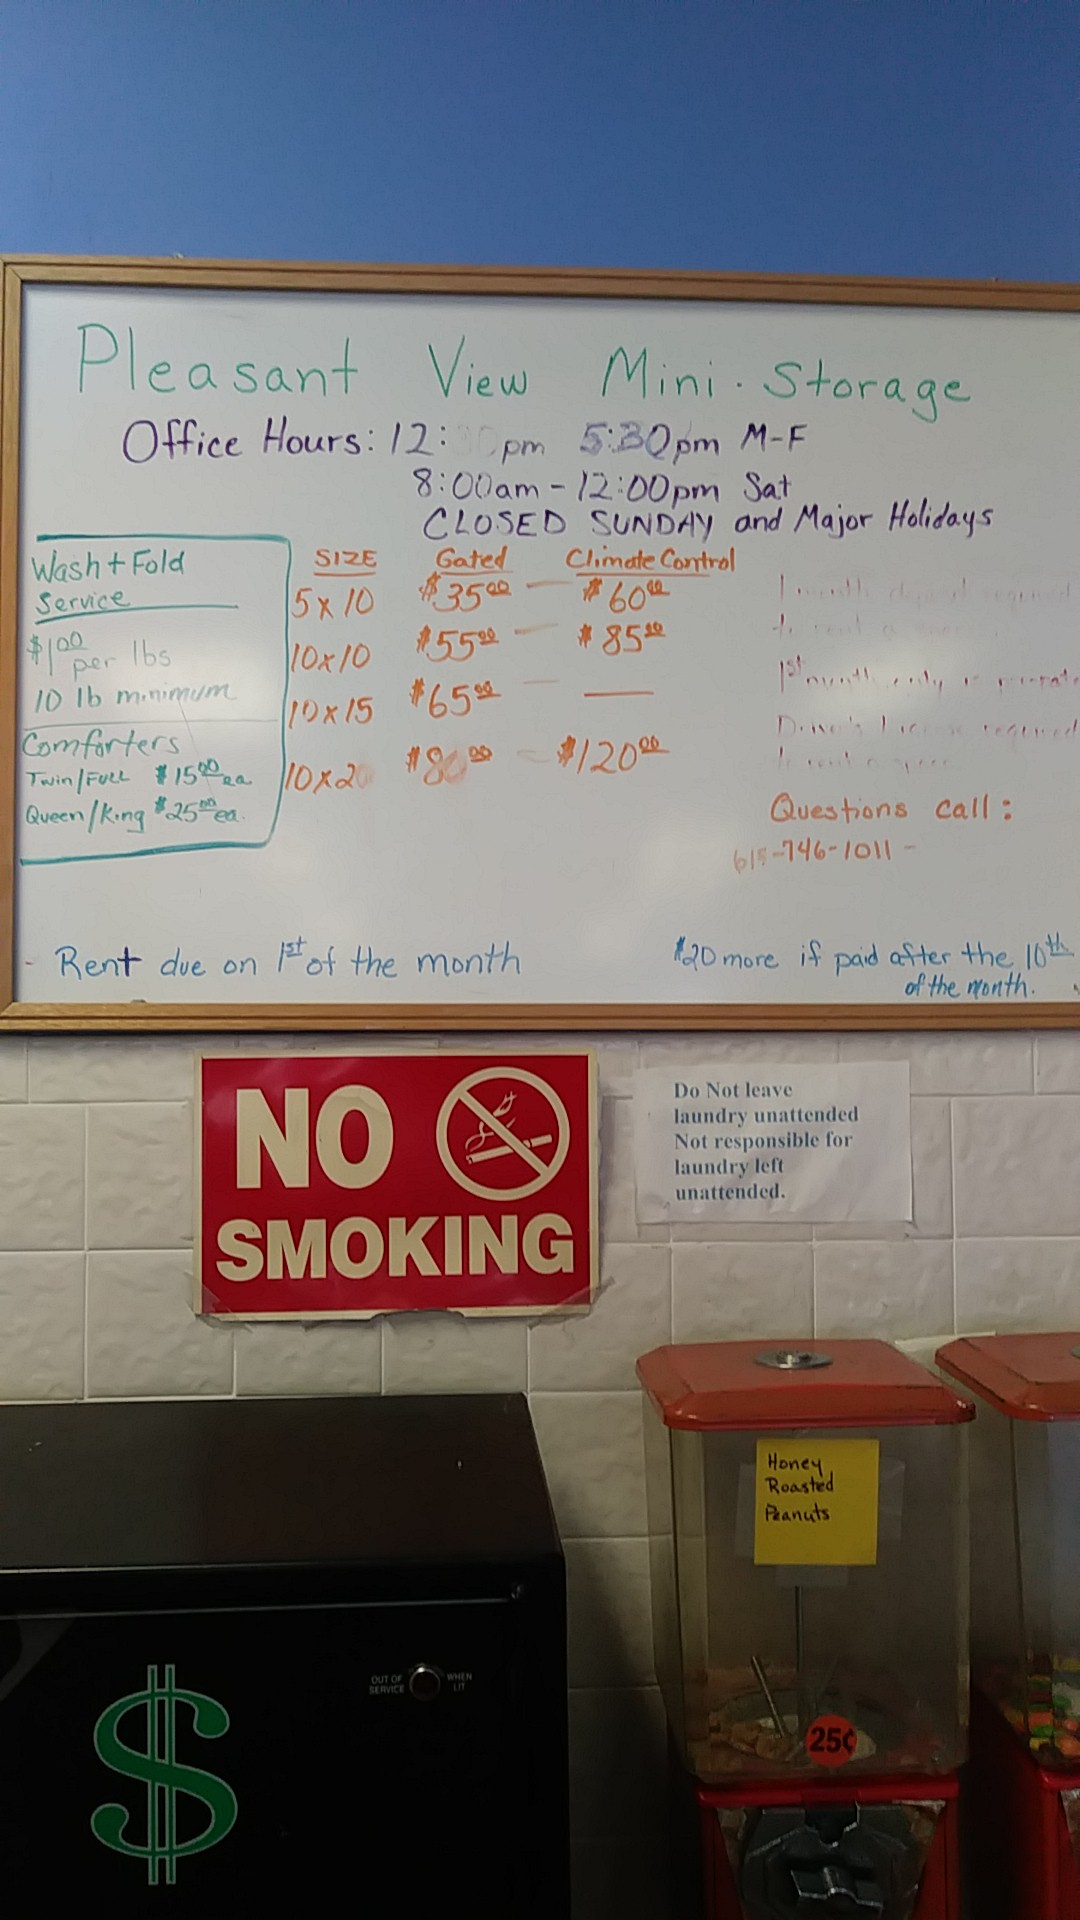 Pleasant View Mini-Storage
Office Hours: 12: pm 5:30pm M-F
8:00am - 12:00pm Sat
CLOSED SUNDAY and Major Holidays
Wash + Fold
Service
$1.00 per lbs
10 lb minimum
Comforters
Twin/Full $15.00 ea
Queen/King $25.00 ea.
SIZE Gated Climate Control
5 x 10 $35.00 — $60.00
10x10 $55.00 — $85.00
10x15 $65.00 — —
10x20 $80.00 — $120.00
1 month deposit required
to rent a
1st month only is
Driver's License required
to rent a space
Questions call:
615-746-1011 -
- Rent due on 1st of the month
$20 more if paid after the 10th
of the month.
NO
SMOKING
Do Not leave
laundry unattended
Not responsible for
laundry left
unattended.
Honey
Roasted
Peanuts
25¢
OUT OF
SERVICE
WHEN
LIT
$